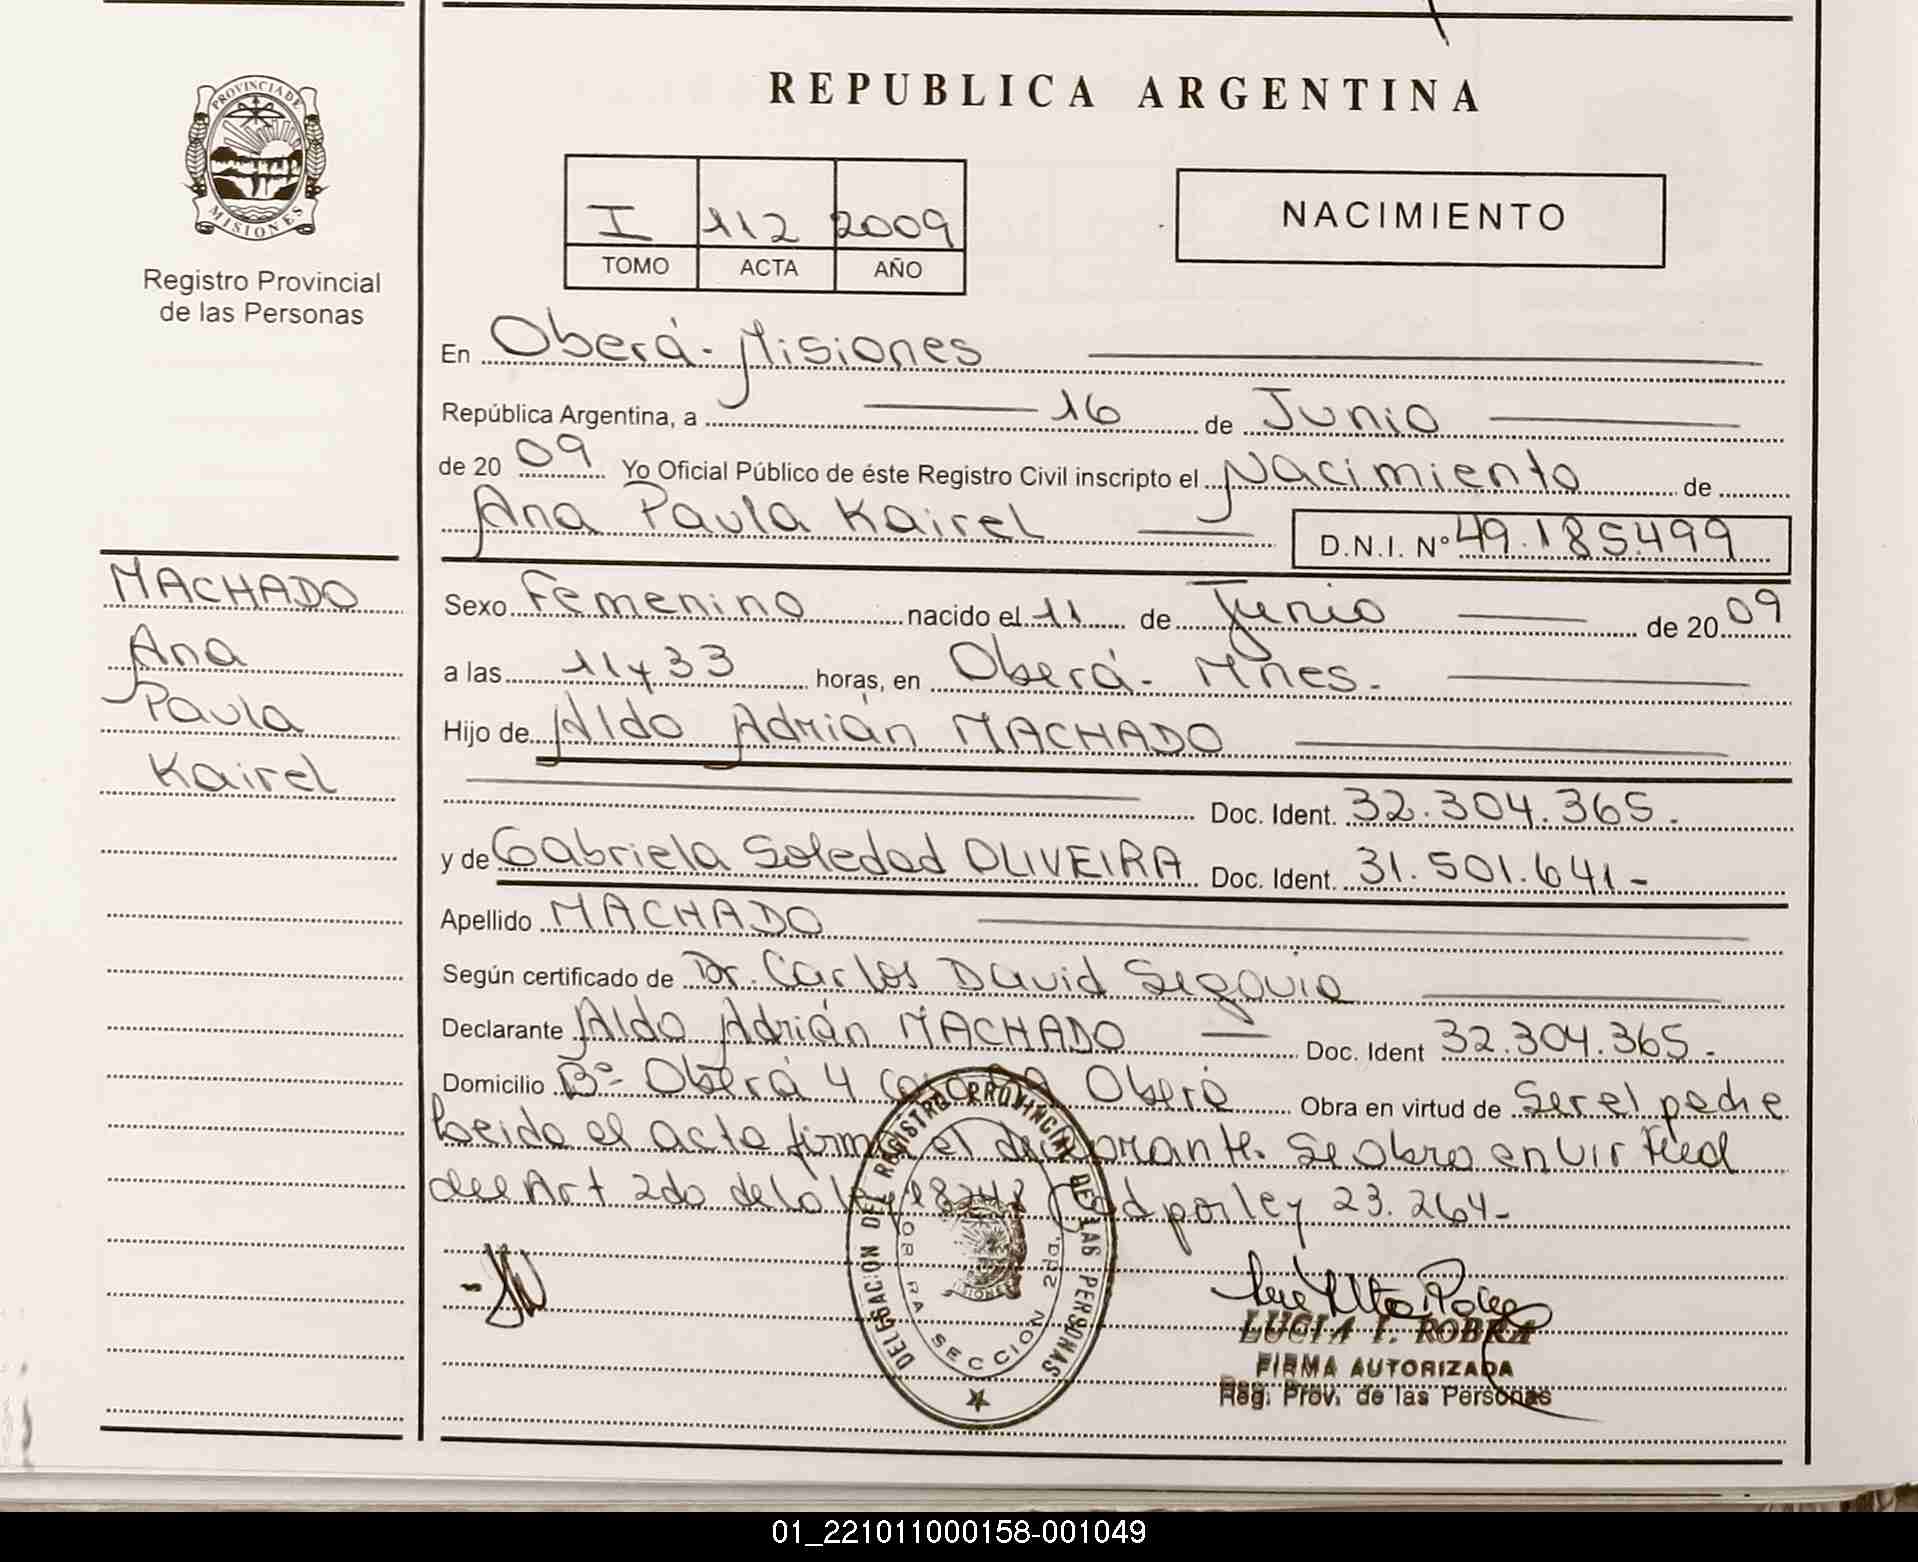 PROVINCIA DE
MISIONES
Registro Provincial
de las Personas
MACHADO
Ana
Paula
Kairel
REPUBLICA ARGENTINA
I 112 2009
TOMO ACTA AÑO
NACIMIENTO
En Oberá - Misiones
República Argentina, a 16 de Junio
de 2009 Yo Oficial Público de éste Registro Civil inscripto el Nacimiento de
Ana Paula Kairel D.N.I. Nº 49.185.499
Sexo Femenino nacido el 11 de Junio de 2009
a las 11 y 33 horas, en Oberá - Mnes.
Hijo de Aldo Adrián MACHADO
Doc. Ident. 32.304.365.
y de Gabriela Soledad OLIVEIRA Doc. Ident. 31.501.641-
Apellido MACHADO
Según certificado de Dr. Carlos David Segovia
Declarante Aldo Adrián MACHADO Doc. Ident 32.304.365-
Domicilio Bº Oberá 4 Oberá Obra en virtud de Ser el padre
Leida el acta firma el declarante. Se obra en virtud
del Art 2do de la ley 18248 por ley 23.264-
DELEGACION DEL REGISTRO PROVINCIAL DE LAS PERSONAS
SECCION 2DA.
MISIONES
LUCIA I. ROBRA
FIRMA AUTORIZADA
Reg. Prov. de las Personas
01_221011000158-001049